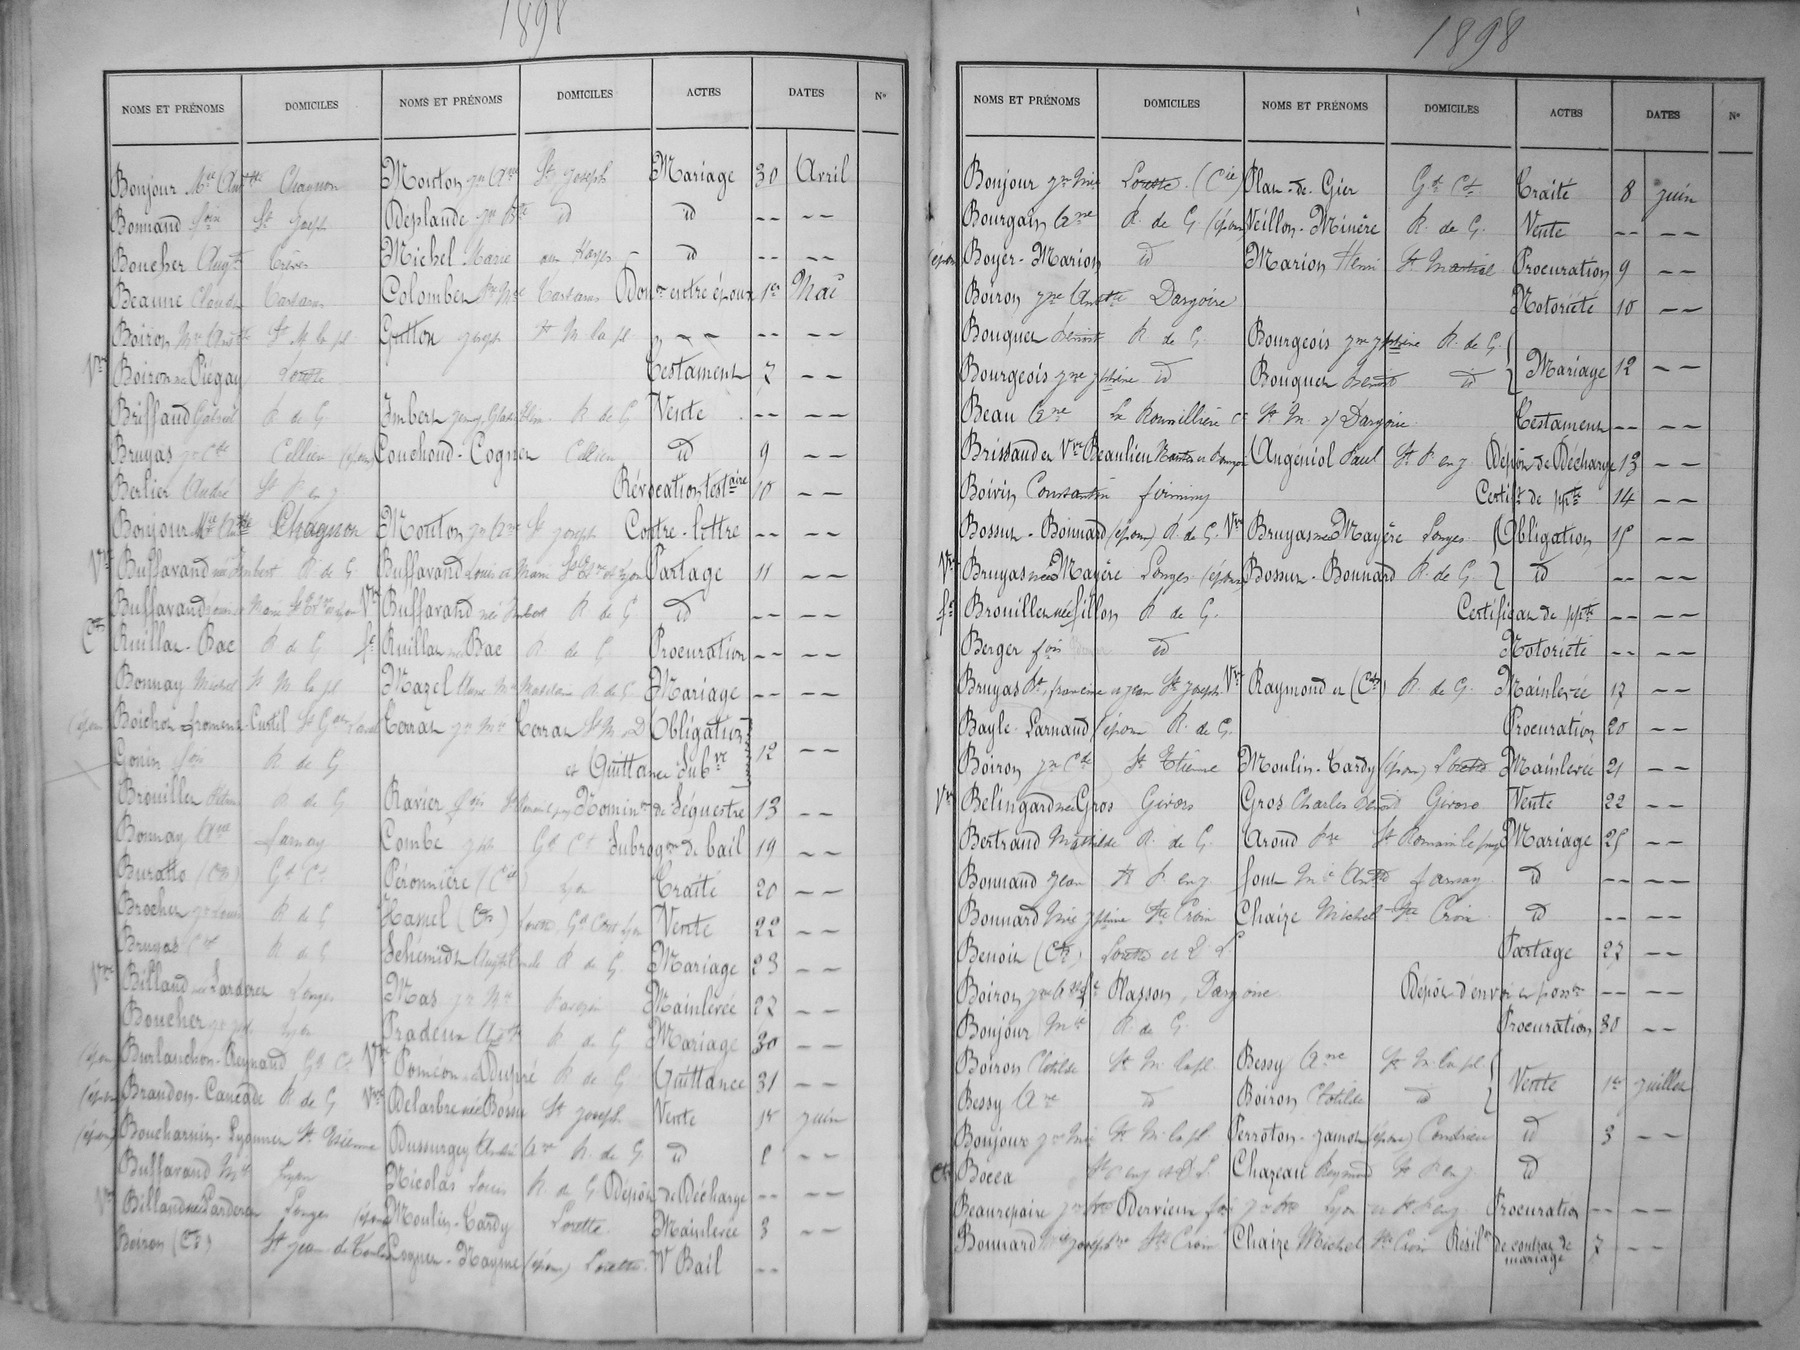 1898
NOMS ET PRÉNOMS DOMICILES NOMS ET PRÉNOMS DOMICILES ACTES DATES N°
Bonjour Mie Antte Chagnon Mouton Jn Ane St Joseph Mariage 30 Avril
Bonnand fois St Joseph Déplaude id id -- --
Boucher Augte Trèves Michel Marie aux Hayes id -- --
Beaune Claude Tartaras Colomber Tartaras Donon entre époux 1er Mai
Boiron Mie Antte St M. la pl. Guitton Joseph St M. la pl. " -- -- --
Vve Boiron née Piégay Lorette Testament 7 --
Briffaud Gabriel R. de G. Imbert R. de G. Vente -- --
Bruyas Jn Cde Cellieu (époux) Couchoud-Cognet Cellieu id 9 --
Berlier André St P. en J. Révocation testaire 10 --
Bonjour Mie Antte Chagnon Mouton Jn Ane St Joseph Contre-lettre -- --
Vve Buffavand née Imbert R. de G. Buffavand Louis et Marie St Etne et Lyon Partage 11 --
Buffavand Louis et Marie St Etne et Lyon Vve Buffavand née Imbert R. de G. id -- --
Cts Ruillat-Bac R. de G. fe Ruillat née Bac R. de G. Procuration -- --
Bonnay Michel St M. la pl. Mazel Madeleine R. de G. Mariage -- --
(époux) Boichot-Froment-Curtil Corrat Jn Mie Corrat St M. Obligation
Gonin fois R. de G. et Quittance Subve 12 --
Brouillet R. de G. Ravier fois Nominon de Séquestre 13 --
Bonnay Ane Farnay Combe Jph Gd Cx Subrogon de bail 19 --
Buratto (Cts) Gd Cx Péronnière (Cie) Lyon Traité 20 --
Brochet Jn Louis R. de G. Hamel (Cts) Lorette, Gd Croix Lyon Vente 22 --
Bruyas R. de G. Schemidt R. de G. Mariage 23 --
Vve Billand née Lardere Longes Mas Jn Mie Mainlevée 22 --
Boucher Lyon Pradeux R. de G. Mariage 30 --
(époux) Burlanchon-Reynaud Gd Cx Vve Poméon née Dupré R. de G. Quittance 31 --
(époux) Brandon-Cancade R. de G. Vve Delarbre née Bossu St Joseph Vente 1er juin
(époux) Boucharnin-Lyonnet St Etienne Dussurgey André Ane R. de G. id --
Buffavand Mie Lyon Nicolas Louis R. de G. Dépôt de Décharge -- --
Vve Billand née Larderet Longes (époux) Moulin-Tardy Lorette Mainlevée 3 --
Boiron (Cts) St Jean de (époux) Lorette Bail --
1898
NOMS ET PRÉNOMS DOMICILES NOMS ET PRÉNOMS DOMICILES ACTES DATES N°
Bonjour Jn Mie Lorette (Cie) Plan-de-Gier Gd Cx Traité 8 juin
Bourgain Ane R. de G. (époux) Veillon-Minère R. de G. Vente -- --
(époux) Boyer-Marion id Marion Henri St Martial Procuration 9 --
Boiron Jne Antte Dargoire Notoriété 10 --
Bouquet Benoit R. de G. Bourgeois Jne Jphine R. de G.
Bourgeois Jne Jphine id Bouquet Benoit id Mariage 12 --
Beau Ane La Rouvillière Ce St M. s/ Dargoire Testament -- --
Brissaud et Vve Beaulieu Augéniol Paul St P. en J. Dépôt de Décharge 13 --
Boivin Constantin Firminy Certift de ppté 14 --
Bossut-Bonnard (époux) R. de G. Vve Bruyas née Mayère Longes Obligation 15 --
Vve Bruyas née Mayère Longes (époux) Bossut-Bonnard R. de G. id -- --
fe Brouillet née Fillon R. de G. Certificat de ppté -- --
Berger fois id Notoriété -- --
Bruyas Francine et Jean St Joseph Vve Raymond et (Cts) R. de G. Mainlevée 17 --
Bayle-Parnaud époux R. de G. Procuration 20 --
Boiron Jn Cde St Etienne Moulin-Tardy (époux) Lorette Mainlevée 21 --
Vve Belingard née Gros Givors Gros Charles Benoit Givors Vente 22 --
Bertrand Mathilde R. de G. Aroud Pre St Romain le puy Mariage 25 --
Bonnand Jean St P. en J. Font Mie Antte Farnay id -- --
Bonnard Mie Jphine Ste Croix Chaize Michel Ste Croix id -- --
Benoit (Cts) Lorette et Partage 27 --
Boiron Jne fe Plasson, Dargoire Dépôt d'envoi en posson -- --
Bonjour Mie R. de G. Procuration 30 --
Boiron Clotilde St M. la pl. Bessy Ane St M. la pl.
Bessy Ane id Boiron Clotilde id Vente 1er juillet
Bonjour Jn Mie St M. la pl. Perroton-Jamet (époux) Condrieu id 3 --
Cts Bocca St P. en J. Chazeau Reymond St P. en J. id
Beaurepaire Dervieux Lyon et St P. en J. Procuration -- --
Bonnard Mie Josephine Ste Croix Chaize Michel Ste Croix Résilon de contrat de mariage 7 --